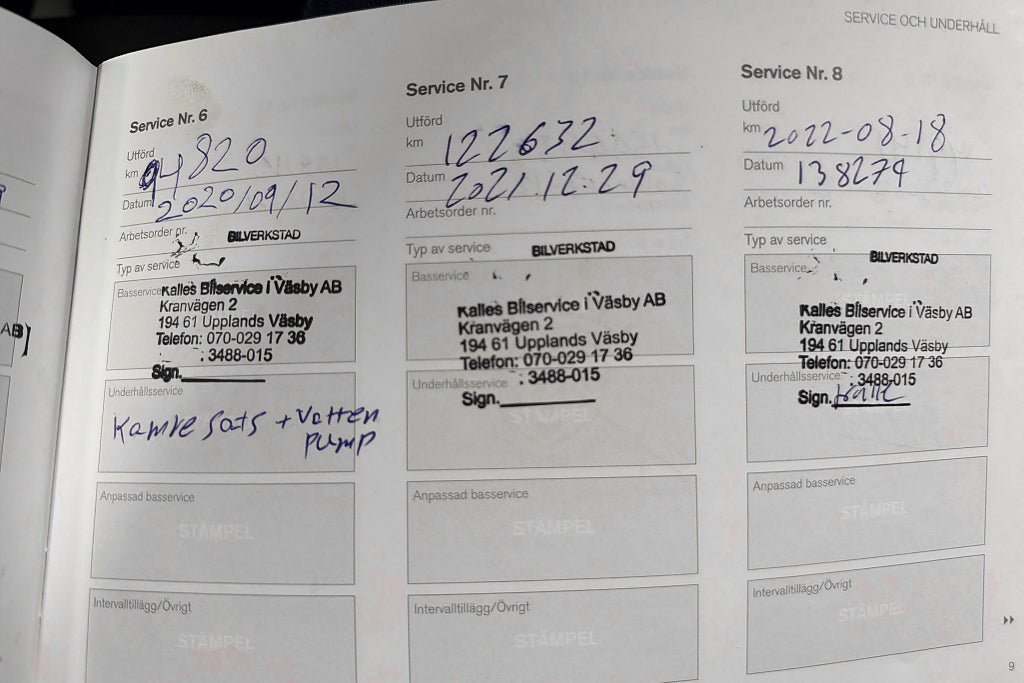 SERVICE OCH UNDERHÅLL
Service Nr. 6
Utförd
km 94820
Datum 2020/09/12
Arbetsorder nr.
BILVERKSTAD
Typ av service
Basservice
Kalles Bilservice i Väsby AB
Kranvägen 2
194 61 Upplands Väsby
Telefon: 070-029 17 36
: 3488-015
Sign.
Underhållsservice
Kamre sats + Vatten
pump
Anpassad basservice
STÄMPEL
Intervalltillägg/Övrigt
STÄMPEL
Service Nr. 7
Utförd
km 122632
Datum 2021 12:29
Arbetsorder nr.
Typ av service
BILVERKSTAD
Basservice
Kalles Bilservice i Väsby AB
Kranvägen 2
194 61 Upplands Väsby
Telefon: 070-029 17 36
: 3488-015
Underhållsservice
Sign.
STÄMPEL
Anpassad basservice
STÄMPEL
Intervalltillägg/Övrigt
STÄMPEL
Service Nr. 8
Utförd
km 2022-08-18
Datum 138274
Arbetsorder nr.
Typ av service
BILVERKSTAD
Basservice
STÄMPEL
Kalles Bilservice i Väsby AB
Kranvägen 2
194 61 Upplands Väsby
Telefon: 070-029 17 36
: 3488-015
Underhållsservice
Sign.
Anpassad basservice
STÄMPEL
Intervalltillägg/Övrigt
STÄMPEL
9
AB